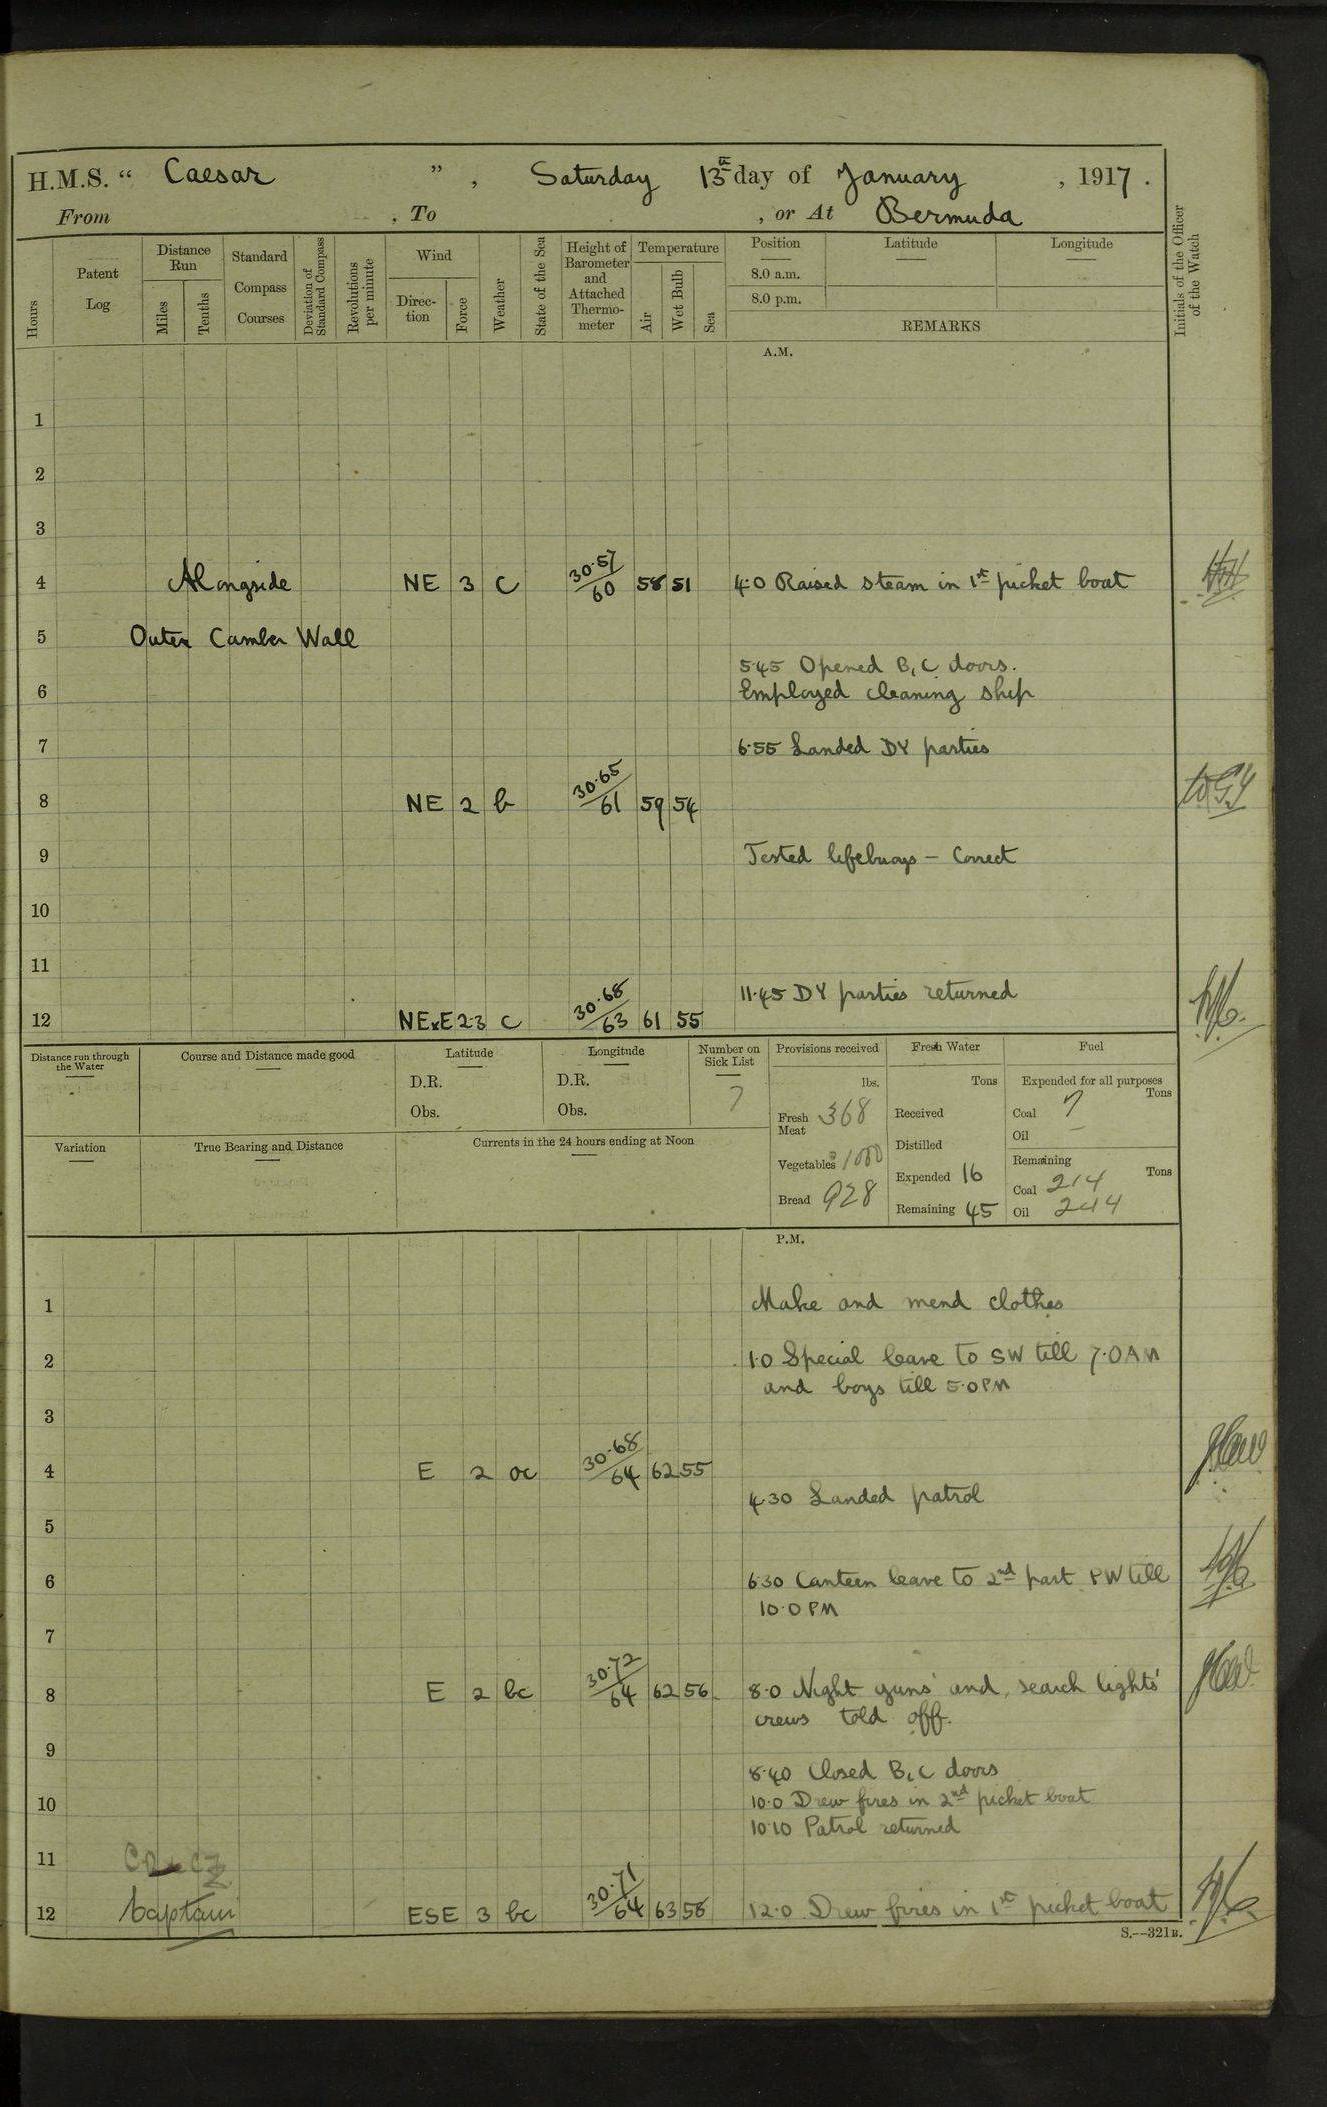 H.M.S. “ Caesar ” , Saturday 13th day of January , 1917 .
From , To , or At Bermuda
Initials of the Officer of the Watch
Hours
Patent Log
Distance Run
Miles
Tenths
Standard Compass Courses
Deviation of Standard Compass
Revolutions per minute
Wind
Direc-tion
Force
Weather
State of the Sea
Height of Barometer and Attached Thermo-meter
Temperature
Air
Wet Bulb
Sea
Position Latitude Longitude
8.0 a.m.
8.0 p.m.
REMARKS
A.M.
1
2
3
4 Alongside NE 3 c 30·57/60 58 51 4·0 Raised steam in 1st picket boat
5 Outer Camber Wall
5·45 Opened B, C doors.
6 Employed cleaning ship
7 6·55 Landed DY parties
8 NE 2 b 30·65/61 59 54
9 Tested lifebuoys – Correct
10
11
11·45 DY parties returned
12 NExE 2·3 c 30·68/63 61 55
Distance run through the Water
Course and Distance made good
Latitude
D.R.
Obs.
Longitude
D.R.
Obs.
Number on Sick List
7
Provisions received
lbs.
Fresh Meat 368
Vegetables 1000
Bread 928
Fresh Water
Tons
Received
Distilled
Expended 16
Remaining 45
Fuel
Expended for all purposes
Tons
Coal 7
Oil –
Remaining
Tons
Coal 214
Oil 244
Variation
True Bearing and Distance
Currents in the 24 hours ending at Noon
P.M.
1 Make and mend clothes
2 1·0 Special leave to SW till 7·0 AM
and boys till 5·0 PM
3
4 E 2 oc 30·68/64 62 55
4·30 Landed patrol
5
6 6·30 Canteen leave to 2nd part PW till
10·0 PM
7
8 E 2 bc 30·72/64 62 56 8·0 Night guns' and search lights'
crews told off.
9
8·40 Closed B, C doors
10 10·0 Drew fires in 2nd picket boat
10·10 Patrol returned
11
Captain
12 ESE 3 bc 30·71/64 63 58 12·0 Drew fires in 1st picket boat
S.--321B.